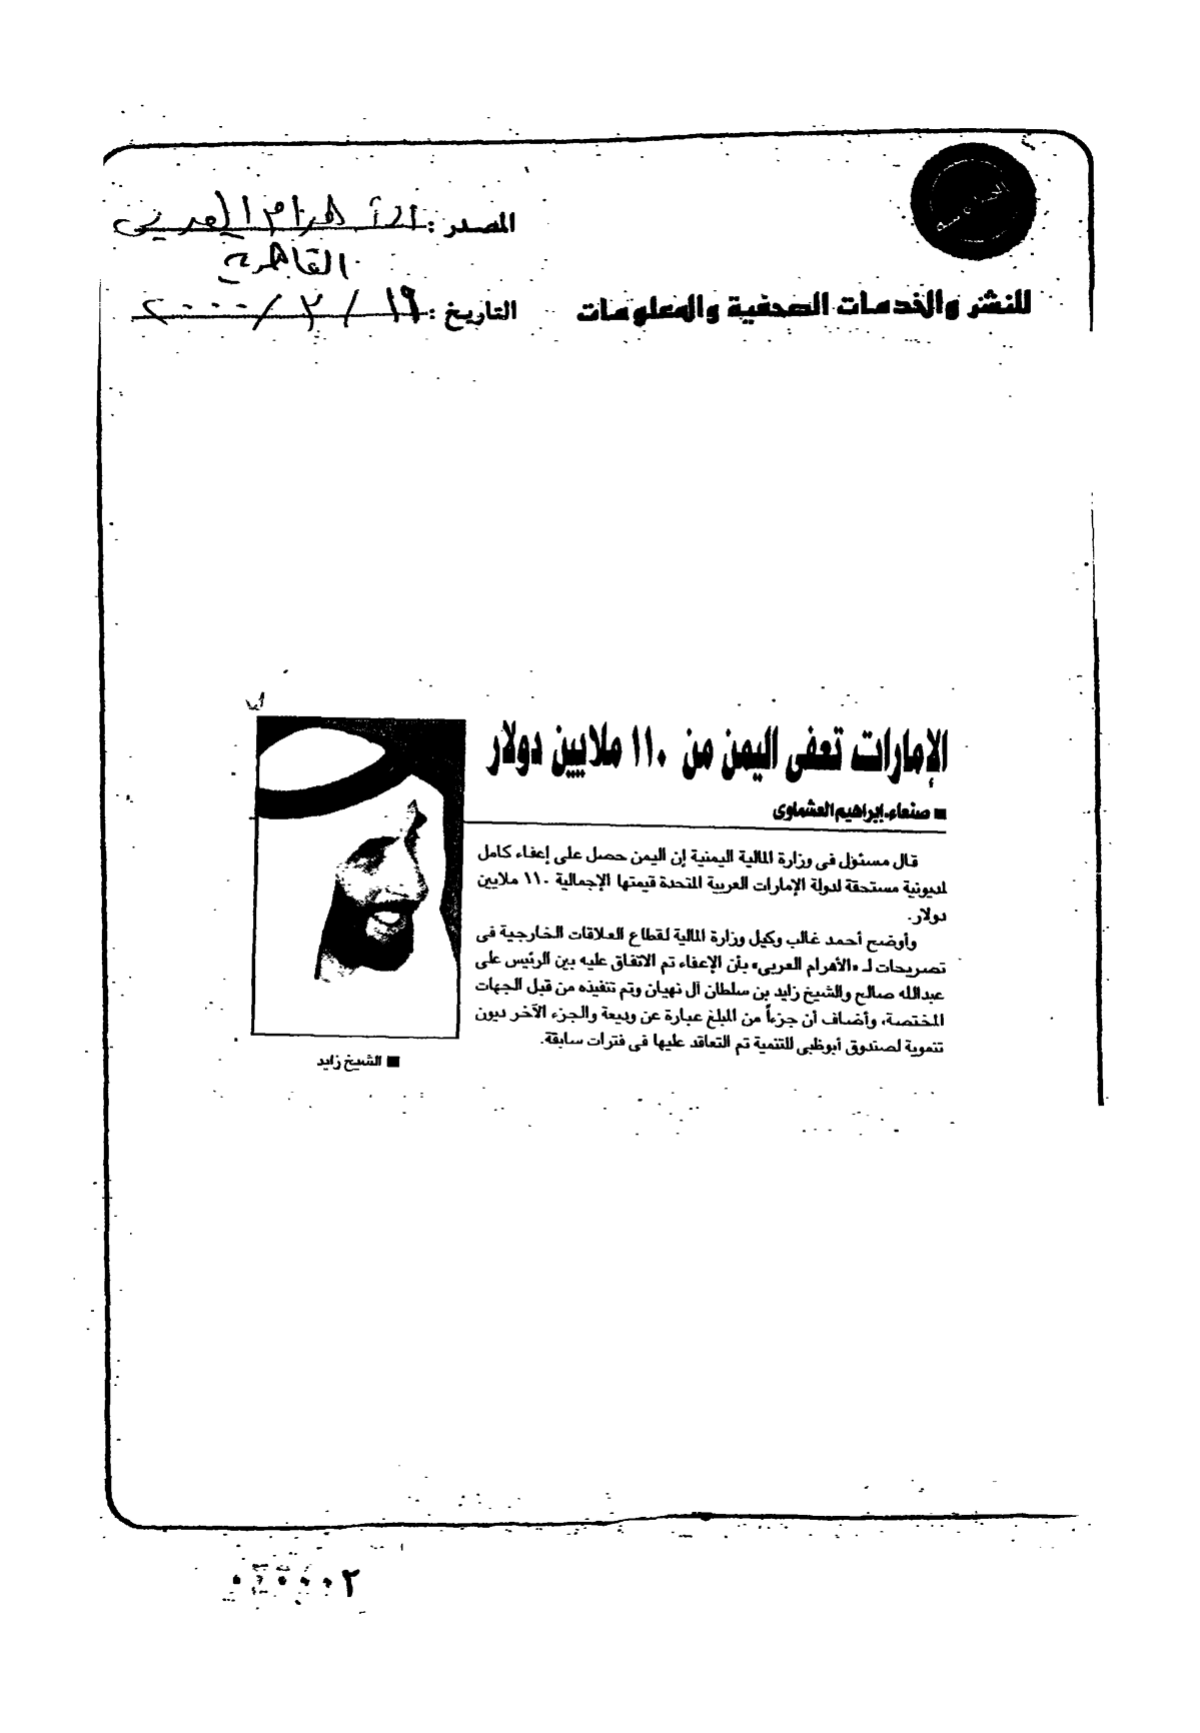 المصدر: الأهرام العربى
القاهرة
للنشر والخدمات الصحفية والمعلومات
التاريخ: ١٩ / ٢ / ٢٠٠٠
الإمارات تعفى اليمن من ١١٠ ملايين دولار
■ صنعاء.ابراهيم العشماوى
قال مسئول فى وزارة المالية اليمنية إن اليمن حصل على إعفاء كامل
لمديونية مستحقة لدولة الإمارات العربية المتحدة قيمتها الإجمالية ١١٠ ملايين
دولار.
وأوضح أحمد غالب وكيل وزارة المالية لقطاع العلاقات الخارجية فى
تصريحات لـ «الأهرام العربى» بأن الإعفاء تم الاتفاق عليه بين الرئيس على
عبدالله صالح والشيخ زايد بن سلطان آل نهيان وتم تنفيذه من قبل الجهات
المختصة، وأضاف أن جزءاً من المبلغ عبارة عن وديعة والجزء الآخر ديون
تنموية لصندوق أبوظبى للتنمية تم التعاقد عليها فى فترات سابقة.
■ الشيخ زايد